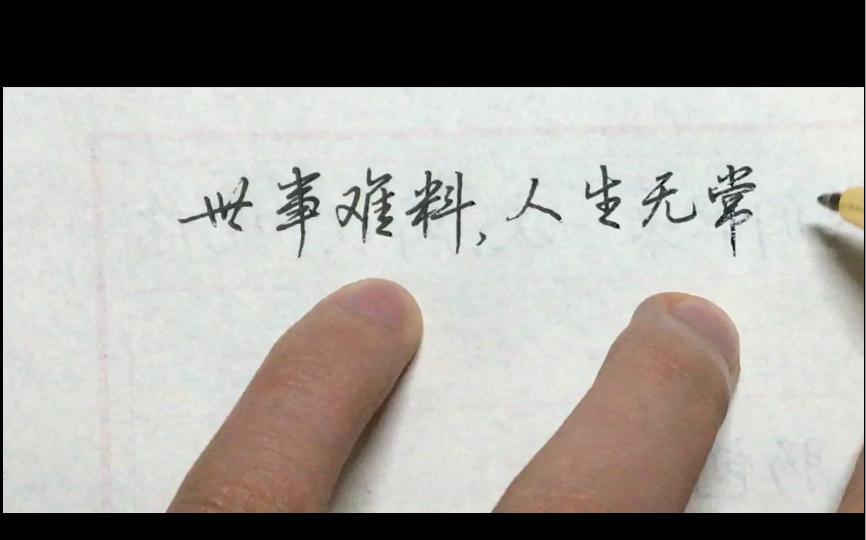 世事难料,人生无常